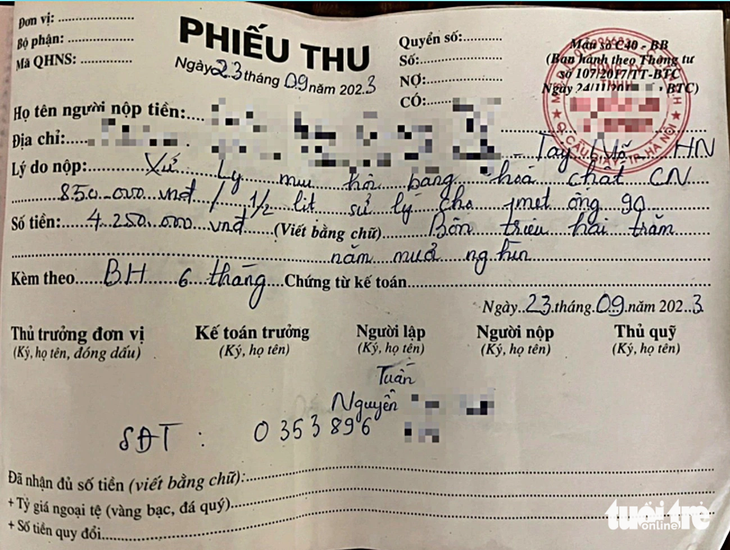 Đơn vị:
Bộ phận:
Mã QHNS:
PHIẾU THU
Ngày 23 tháng 09 năm 2023
Quyển số:
Số:
NỢ:
CÓ:
Mẫu số C40 - BB
(Ban hành theo Thông tư
số 107/2017/TT-BTC
Ngày 24/11/ BTC)
CÔNG TY
TNHH
Q. CẦU GIẤY - TP. HÀ NỘI
Họ tên người nộp tiền:
Địa chỉ: Tây Mỗ HN
Lý do nộp: Xử Lý mui hôi bang hoá chất CN
850.000 vnđ / 1/2 lit sử lý cho 1 met ống 90
Số tiền: 4.250.000 vnđ (Viết bằng chữ) Bôn triêu hai trăm
năm mươi nghìn
Kèm theo BH 6 tháng Chứng từ kế toán
Ngày 23 tháng 09 năm 2023
Thủ trưởng đơn vị
(Ký, họ tên, đóng dấu)
Kế toán trưởng
(Ký, họ tên)
Người lập
(Ký, họ tên)
Người nộp
(Ký, họ tên)
Thủ quỹ
(Ký, họ tên)
Tuấn
Nguyễn
SĐT : 0353896
Đã nhận đủ số tiền (viết bằng chữ):
+ Tỷ giá ngoại tệ (vàng bạc, đá quý)
+ Số tiền quy đổi
tuổi trẻ
online